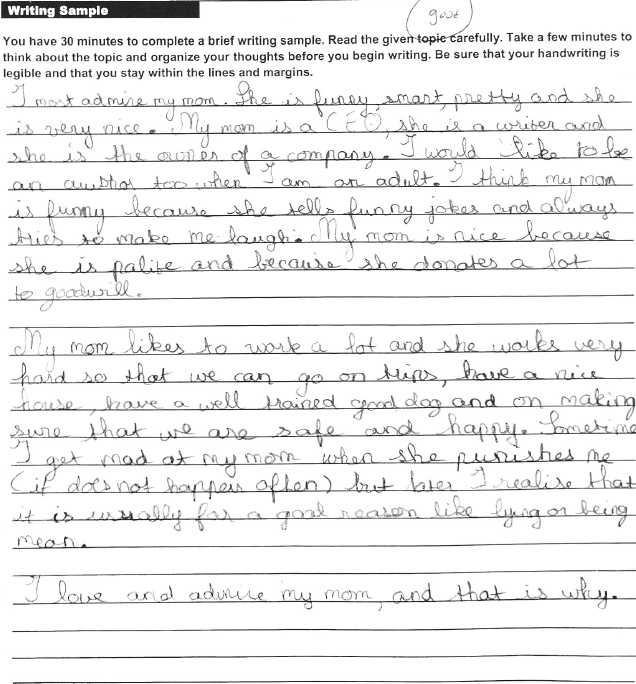 Writing Sample
good
You have 30 minutes to complete a brief writing sample. Read the given topic carefully. Take a few minutes to
think about the topic and organize your thoughts before you begin writing. Be sure that your handwriting is
legible and that you stay within the lines and margins.
I most admire my mom. She is funny, smart, pretty and she
is very nice. My mom is a CEO, she is a writer and
she is the owner of a company. I would like to be
an author too when I am an adult. I think my mom
is funny because she tells funny jokes and always
tries to make me laugh. My mom is nice because
she is polite and because she donates a lot
to goodwill.
My mom likes to work a lot and she works very
hard so that we can go on trips, have a nice
house, have a well trained good dog and on making
sure that we are safe and happy. Sometime
I get mad at my mom when she punishes me
(it does not happen often) but later I realise that
it is usually for a good reason like lying or being
mean.
I love and admire my mom, and that is why.